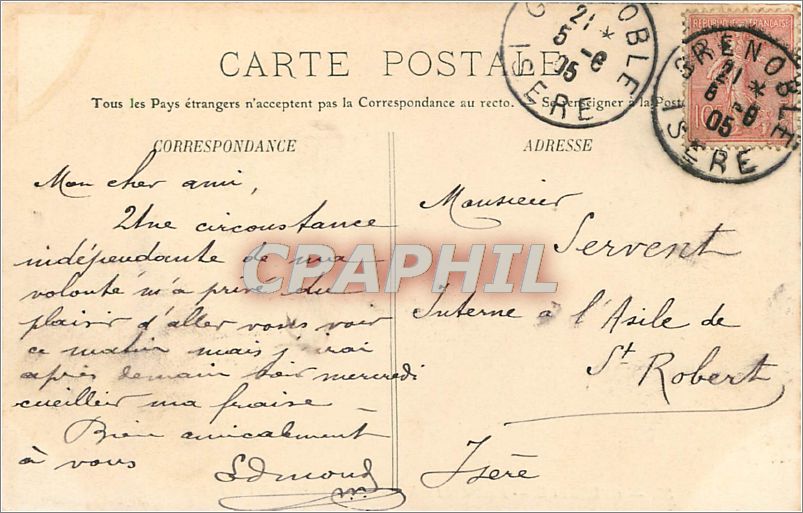 CARTE POSTALE
Tous les Pays étrangers n'acceptent pas la Correspondance au recto. Se renseigner à la Poste
CORRESPONDANCE
Mon cher ami,
Une circonstance
indépendante de ma
volonté m'a privé du
plaisir d'aller vous voir
ce matin mais j'irai
après demain soir mercredi
cueillir ma fraise
Bien amicalement
à vous Edmond
ADRESSE
Monsieur
Servent
Interne à l'Asile de
St Robert
Isère
GRENOBLE
21 *
5 -6
05
ISERE
REPUBLIQUE FRANÇAISE
10
GRENOBLE
21 *
6 -6
05
ISERE
CPAPHIL